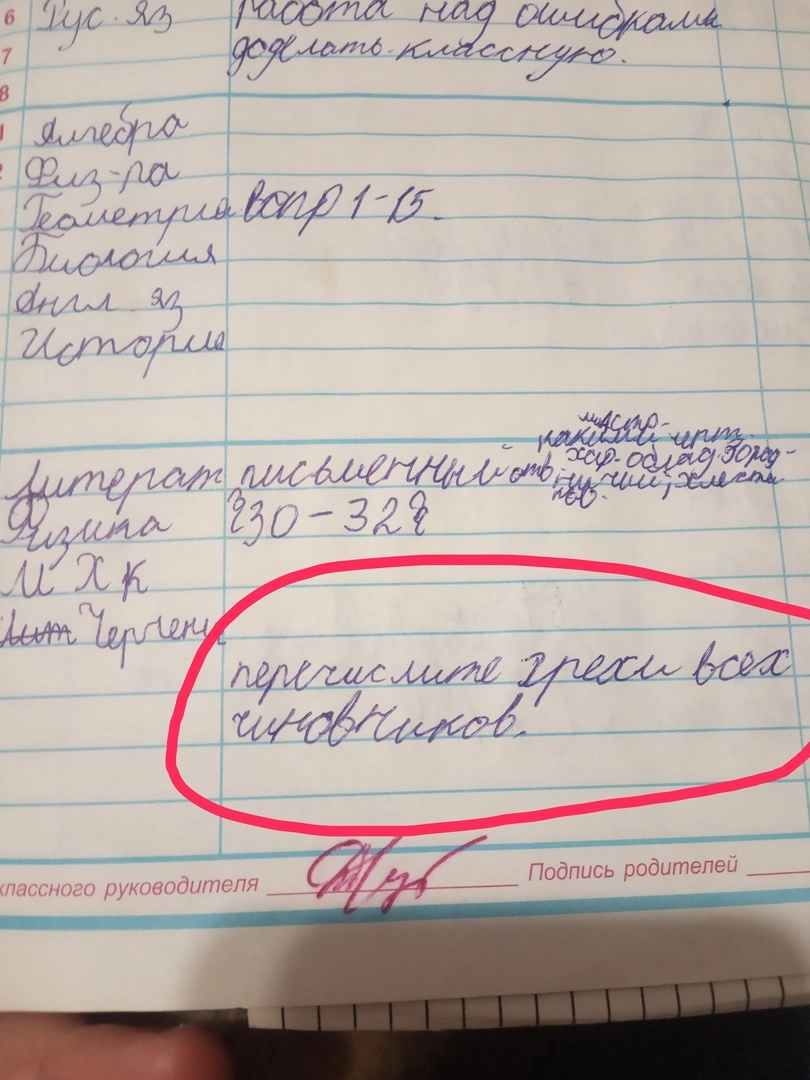 6 Рус. яз Работа над ошибками
7 доделать классную.
8
1 Алгебра
2 Физ-ра
Геометрия вопр 1-15.
Биология
Англ. яз
История
Литерат письменный отв
какими черт.
хар. облад. Город-
ничий, Хлеста
ков.
Физика §30-32§
МХК
Лит Черчени
перечислите грехи всех
чиновников.
классного руководителя Подпись родителей